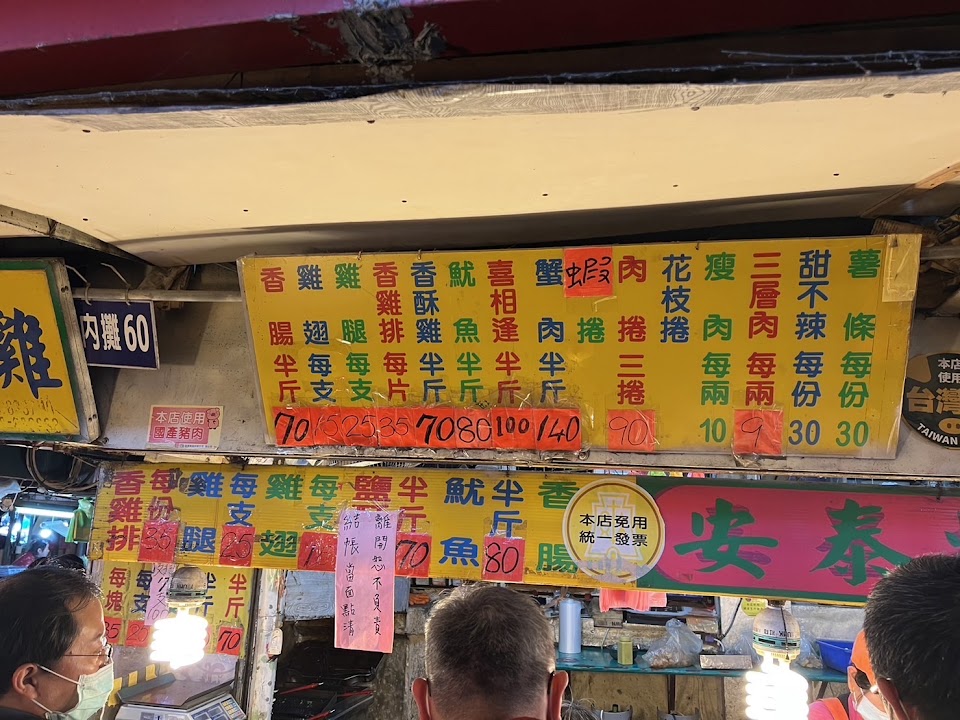 香腸半斤 70
雞翅每支 15
雞腿每支 25
香雞排每片 35
香酥雞半斤 70
魷魚半斤 80
喜相逢半斤 100
蟹肉半斤 140
蝦捲
肉捲三捲 90
花枝捲
瘦肉每兩 10
三層肉每兩 9
甜不辣每份 30
薯條每份 30
雞
內攤60
本店使用
國產豬肉
本店
使用
台灣
TAIWAN
香雞排每份 35
雞腿每支 25
雞翅每支
鹽半斤 70
魷魚半斤 80
香腸
離開恕不負責
結帳當面點清
本店免用
統一發票
安泰
每塊 35
每支
半斤 70